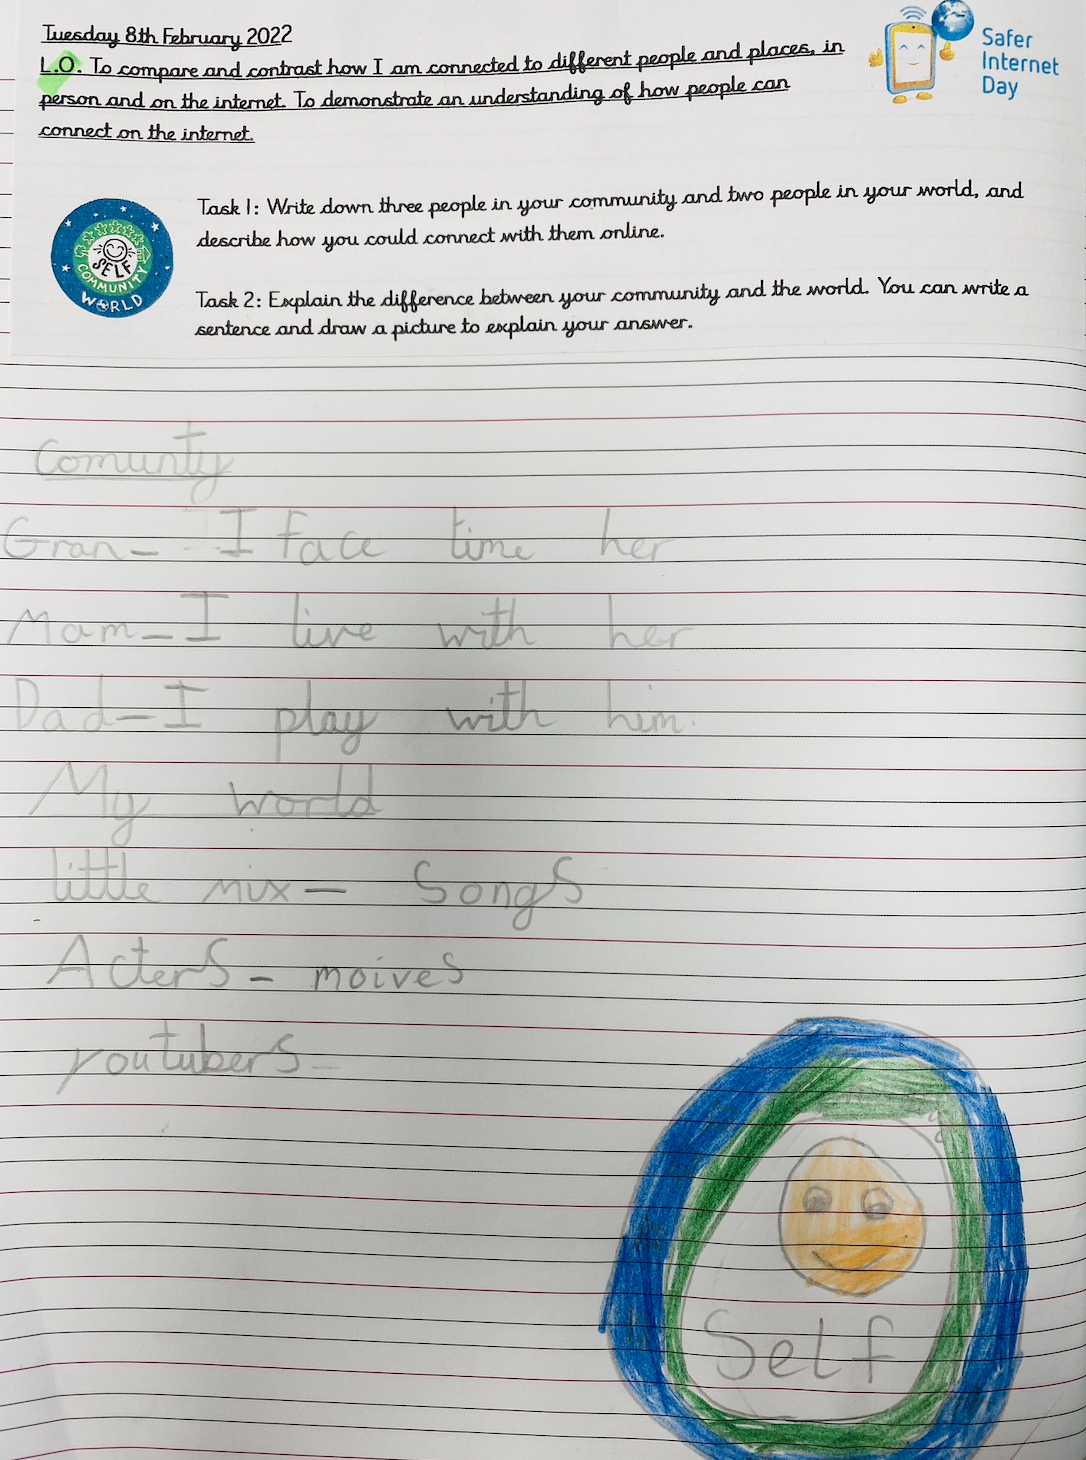 Tuesday 8th February 2022
L.O. To compare and contrast how I am connected to different people and places, in
person and on the internet. To demonstrate an understanding of how people can
connect on the internet.
Safer
Internet
Day
SELF
COMMUNITY
WORLD
Task 1: Write down three people in your community and two people in your world, and
describe how you could connect with them online.
Task 2: Explain the difference between your community and the world. You can write a
sentence and draw a picture to explain your answer.
Comunty
Gran - I face time her
Mam - I live with her
Dad - I play with him.
My world
little mix - Songs
Acters - moives
youtubers -
Self